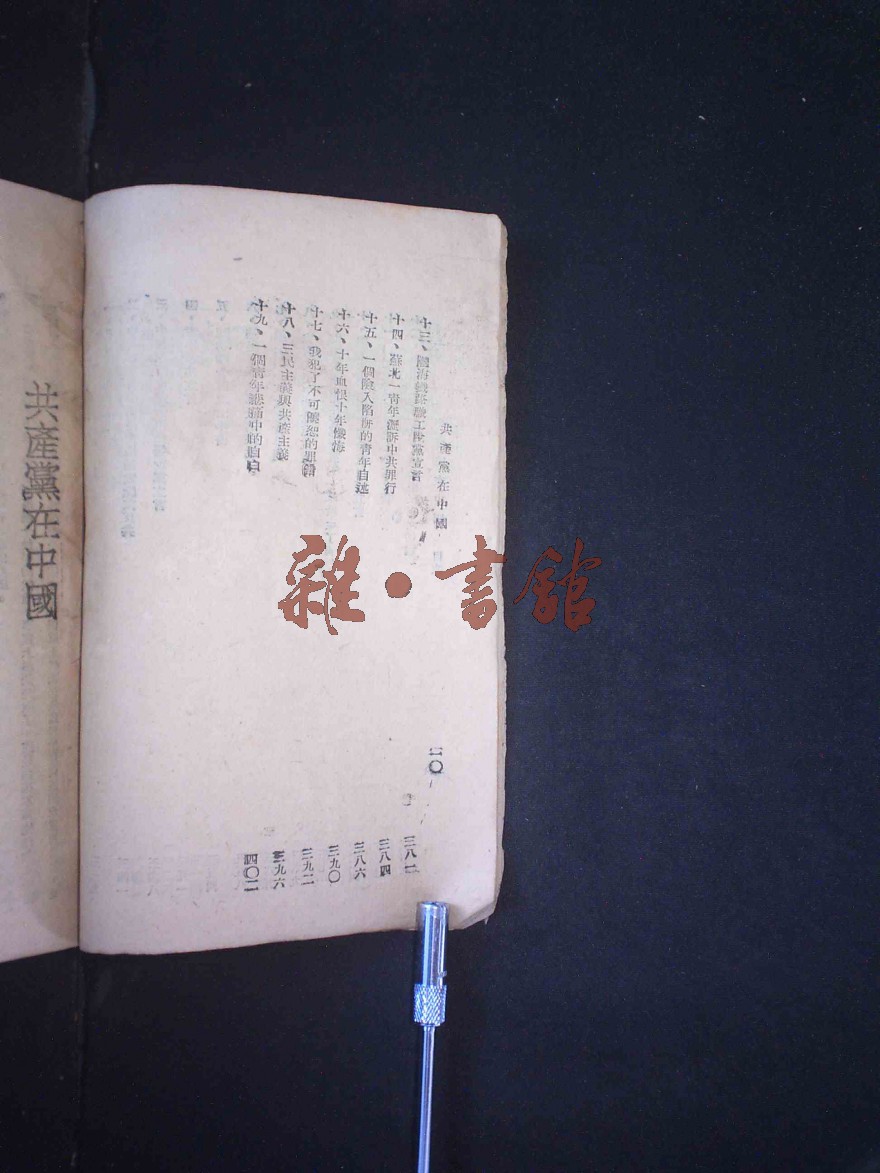 共產黨在中國
二〇
十三、隴海鐵路職工脫黨宣言 三八二
十四、蘇北一青年瀝訴中共罪行 三八四
十五、一個陷入陷阱的青年自述 三八六
十六、十年血恨十年懺悔 三九〇
十七、我犯了不可饒恕的罪 三九二
十八、三民主義與共產主義 三九六
十九、一個青年悲痛中的自白 四〇二
共產黨在中國
雜·書館